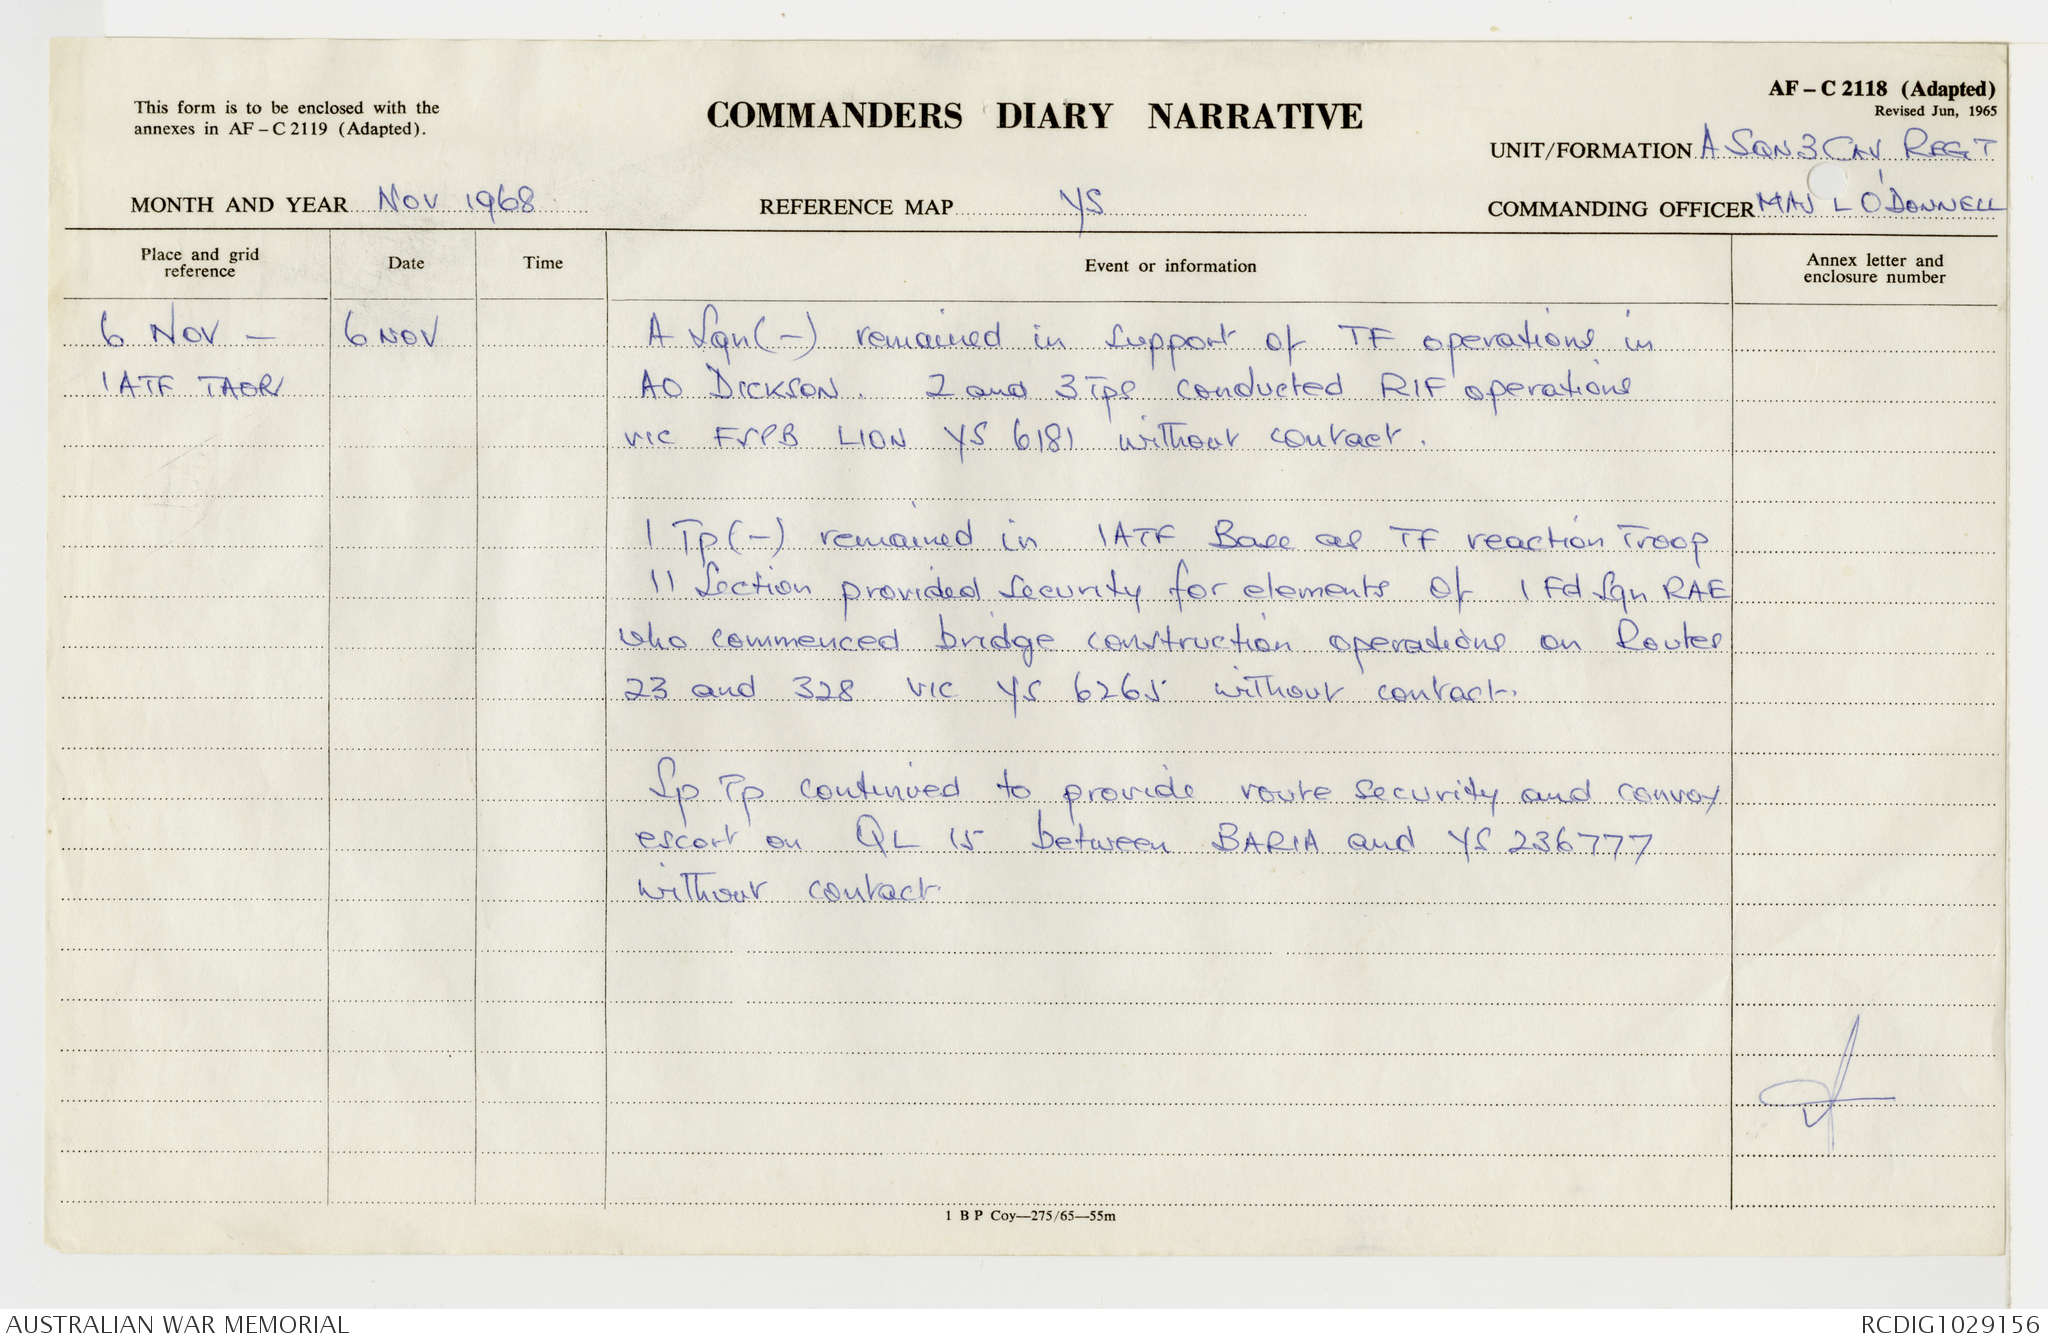 This form is to be enclosed with the
annexes in AF – C 2119 (Adapted).
COMMANDERS DIARY NARRATIVE
AF – C 2118 (Adapted)
Revised Jun, 1965
UNIT/FORMATION A SQN 3 CAV REGT
MONTH AND YEAR NOV 1968
REFERENCE MAP YS
COMMANDING OFFICER MAJ L O'DONNELL
Place and grid
reference
Date
Time
Event or information
Annex letter and
enclosure number
6 NOV – 6 NOV A Sqn (–) remained in support of TF operations in
1 ATF TAOR AO DICKSON. 2 and 3 Tps conducted RIF operations
vic FSPB LION YS 6181 without contact.
1 Tp (–) remained in 1ATF Base as TF reaction Troop
11 Section provided security for elements of 1 Fd Sqn RAE
who commenced bridge construction operations on Routes
23 and 328 vic YS 6265 without contact.
Sp Tp continued to provide route security and convoy
escort on QL 15 between BARIA and YS 236777
without contact.
1 B P Coy—275/65—55m
AUSTRALIAN WAR MEMORIAL
RCDIG1029156